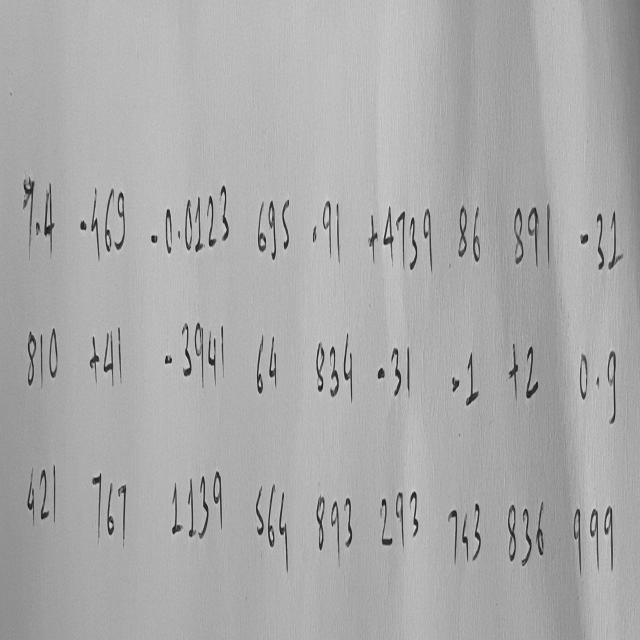 7.4 -469 -0.0123 695 -91 +4739 86 891 -31
810 +41 -3941 64 834 -31 -1 +2 0.9
421 767 1139 564 893 293 743 836 999